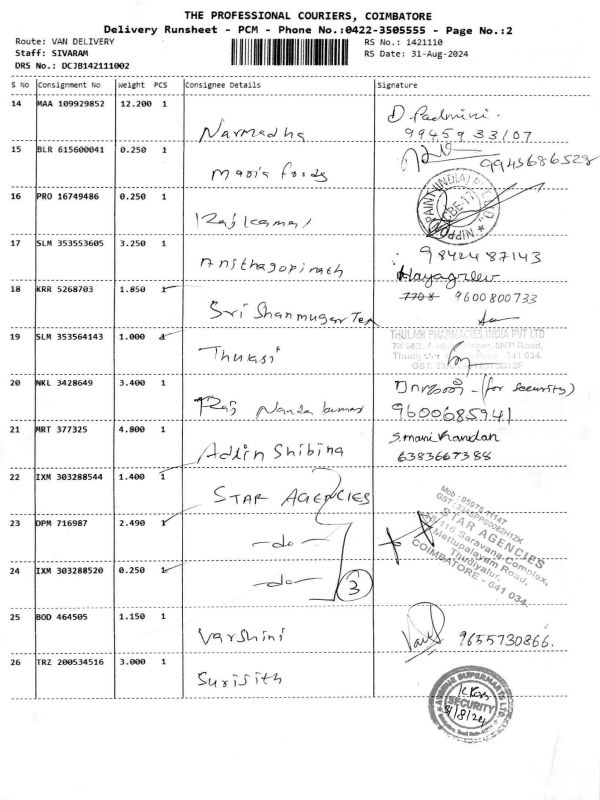 THE PROFESSIONAL COURIERS, COIMBATORE
Delivery Runsheet - PCM - Phone No.:0422-3505555 - Page No.:2
Route: VAN DELIVERY
Staff: SIVARAM
DRS No.: DCJB142111002
RS No.: 1421110
RS Date: 31-Aug-2024
S No Consignment No Weight PCS Consignee Details Signature
14 MAA 109929852 12.200 1 Narmadha D. Padmini. 99459 33107
15 BLR 615600041 0.250 1 Maria foods 9943686528
16 PRO 16749486 0.250 1 Rajkamal
NIPPON PAINT (INDIA) CBE-17
17 SLM 353553605 3.250 1 Anithagopinath 9842487143
18 KRR 5268703 1.850 1 Sri Shanmugar Tex Hayagrilev
7708 9600800733
19 SLM 353564143 1.000 1 Thulasi
THULASI PHARMACIES INDIA PVT LTD
20 NKL 3428649 3.400 1 Raj Nanda kumar (for security)
9600685941
21 MRT 377325 4.800 1 Adlin Shibina S.manikandan
6383667388
22 IXM 303288544 1.400 1 STAR AGENCIES
23 DPM 716987 2.490 1 -do-
24 IXM 303288520 0.250 1 -do-
3
STAR AGENCIES
Saravana Complex,
Mettupalayam Road,
Thudiyalur,
COIMBATORE - 641 034.
25 BOD 464505 1.150 1 Varshini 9655730866.
26 TRZ 200534516 3.000 1 Surisith
AVENUE SUPERMARTS LTD.
SECURITY